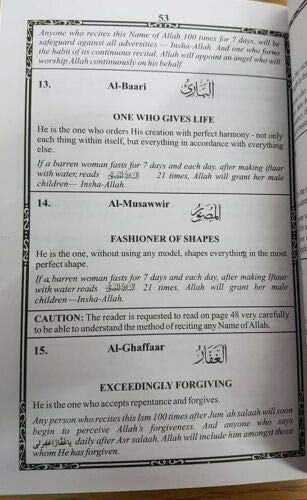 53
Anyone who recites this Name of Allah 100 times for 7 days, will be
safeguard against all adversities — Insha-Allah. And one who forms
the habit of its continuous recital, Allah will appoint an angel who will
worship Allah continuously on his behalf
13. Al-Baari الْبَارِئُ
ONE WHO GIVES LIFE
He is the one who orders His creation with perfect harmony - not only
each thing within itself, but everything in accordance with everything
else.
If a barren woman fasts for 7 days and each day, after making iftaar
with water, reads 21 times, Allah will grant her male
children— Insha-Allah.
14. Al-Musawwir الْمُصَوِّرُ
FASHIONER OF SHAPES
He is the one, without using any model, shapes everything in the most
perfect shape.
If a barren woman fasts for 7 days and each day, after making Iftaar
with water, reads 21 times, Allah will grant her male
children —Insha-Allah.
CAUTION: The reader is requested to read on page 48 very carefully
to be able to understand the method of reciting any Name of Allah.
15. Al-Ghaffaar الْغَفَّارُ
EXCEEDINGLY FORGIVING
He is the one who accepts repentance and forgives.
Any person who recites this Ism 100 times after Jum`ah salaah will soon
begin to perceive Allah's forgiveness. And anyone who says
يَا غَفَّارُ اغْفِرْلِي daily after Asr salaah, Allah will include him amongst those
whom He has forgiven.